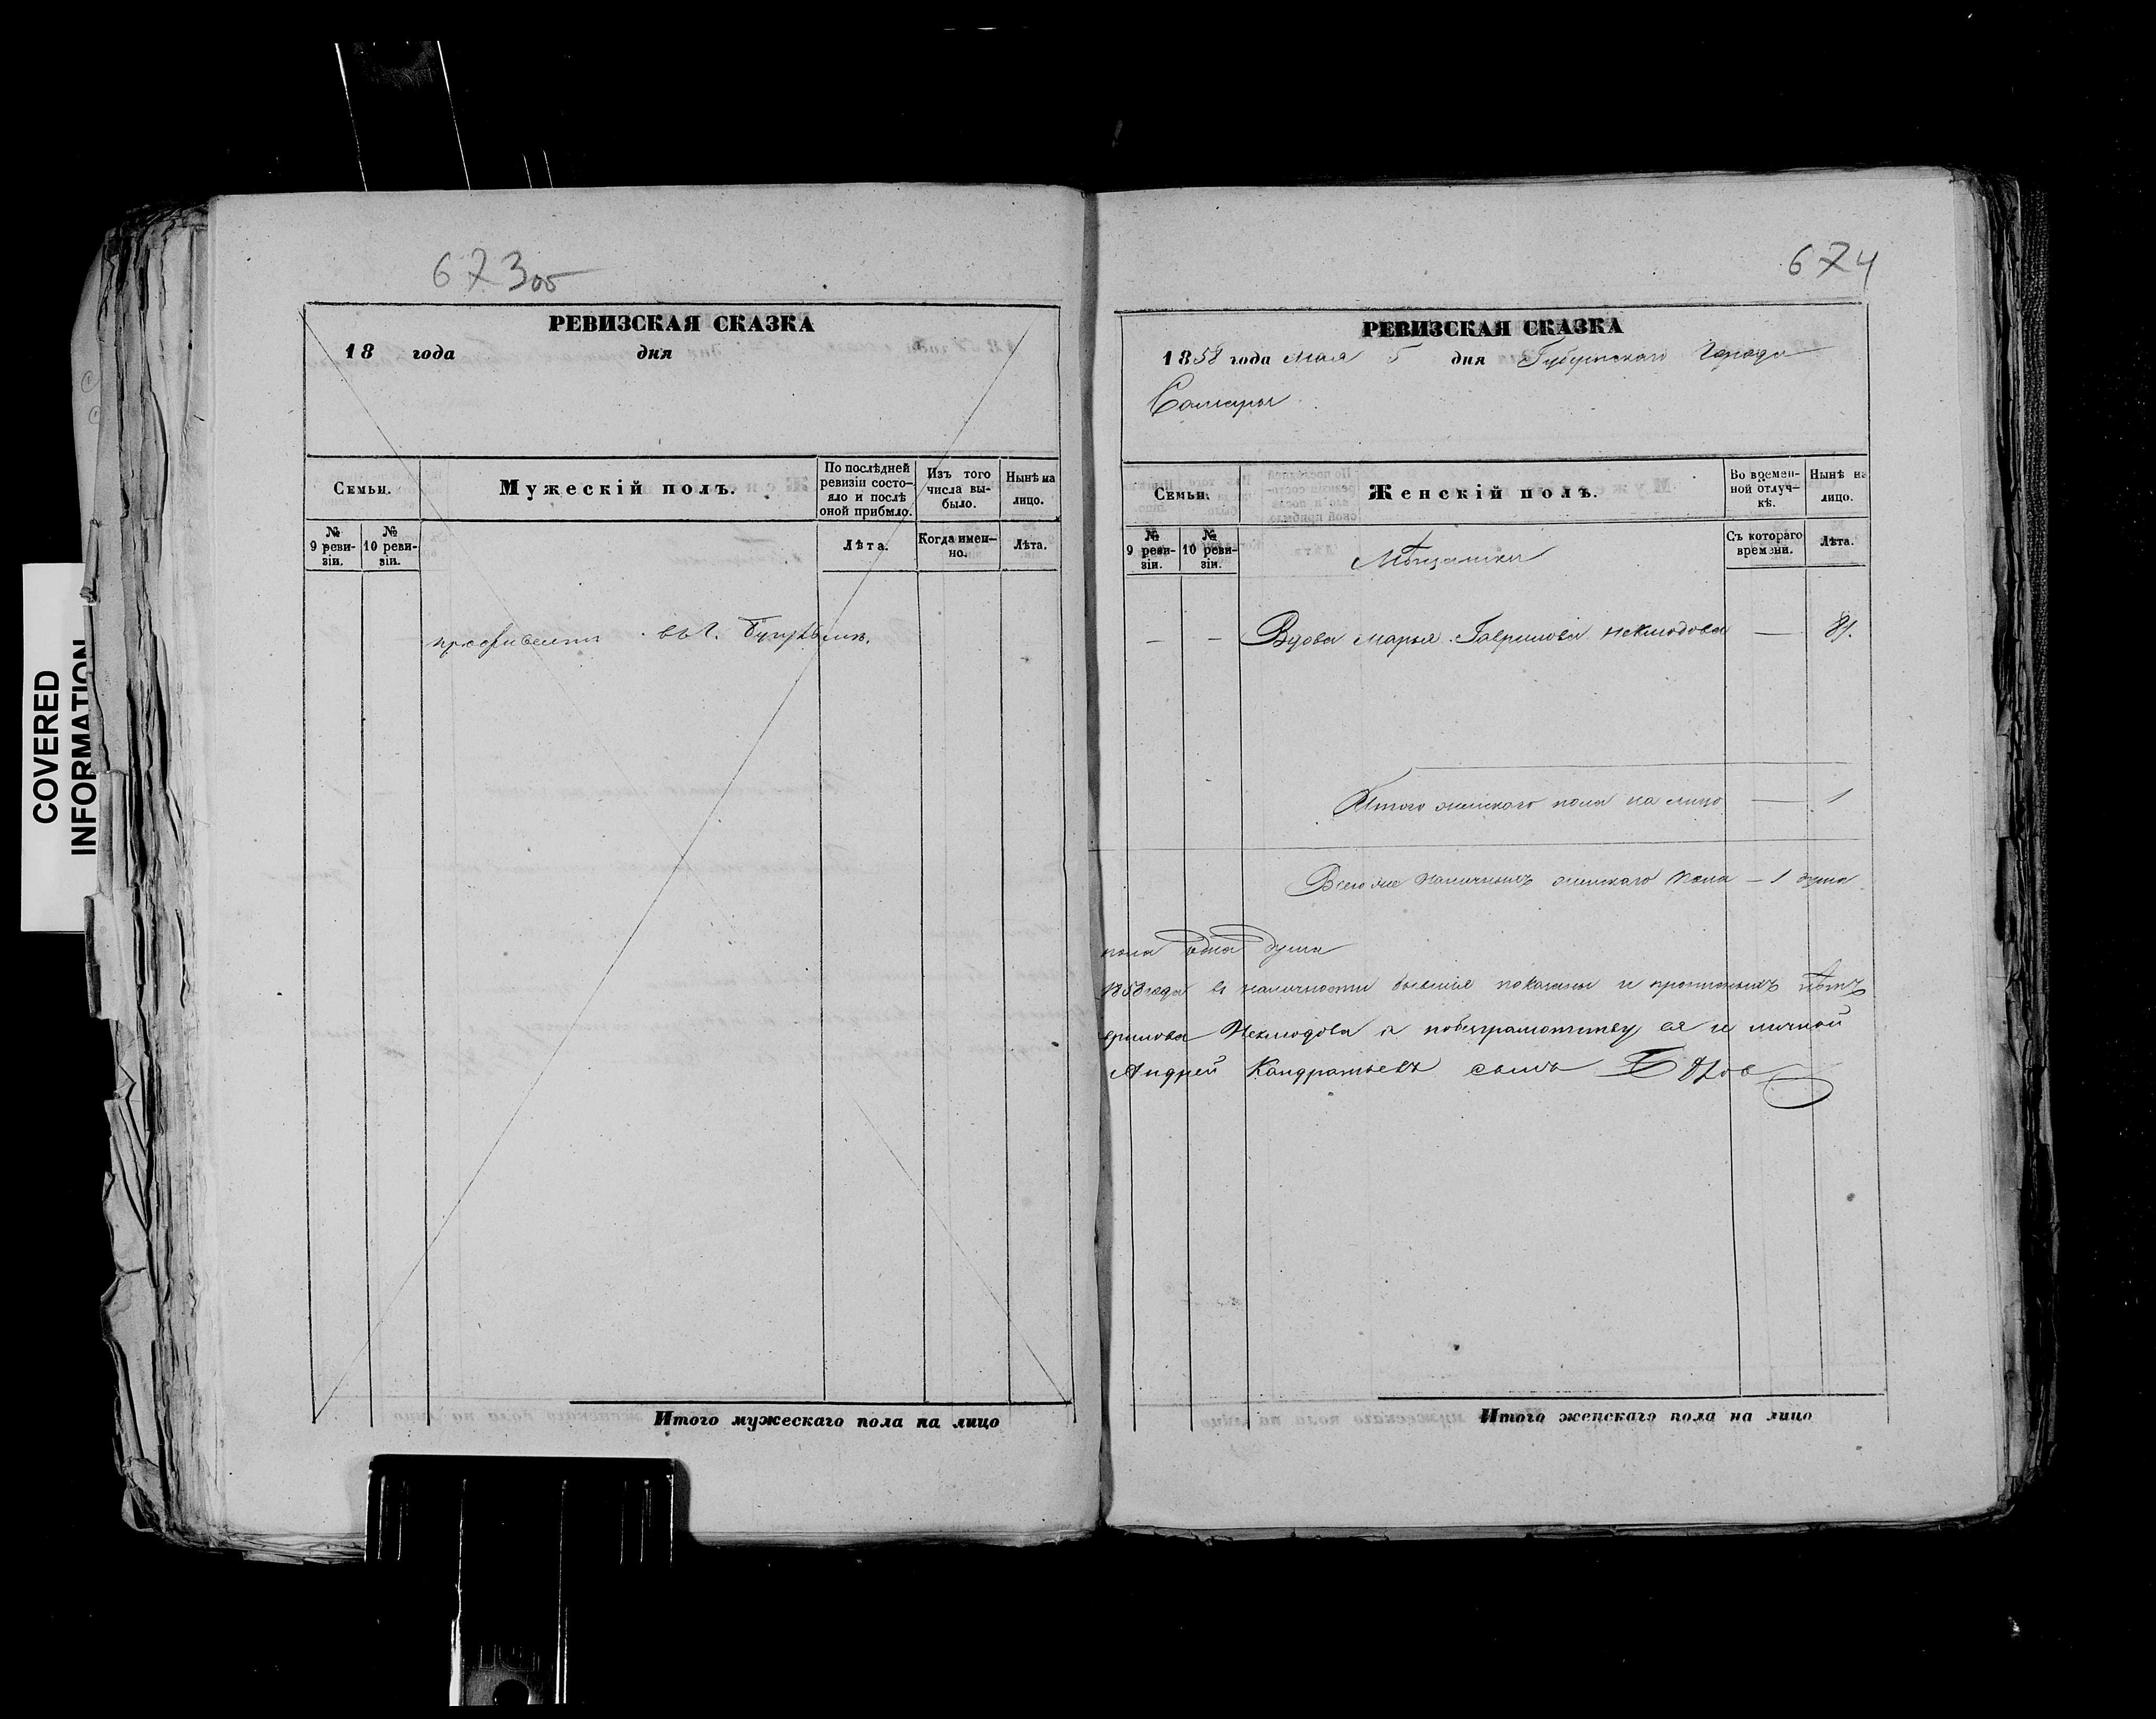 COVERED
INFORMATION
673об
РЕВИЗСКАЯ СКАЗКА
18 года дня
Семьи.
Мужескій полъ.
По послѣдней ревизіи состояло и послѣ оной прибыло.
Изъ того числа выбыло.
Нынѣ на лицо.
№ 9 ревизіи.
№ 10 ревизіи.
Лѣта.
Когда именно.
Лѣта.
проживаетъ въ г. Бугульмѣ.
Итого мужескаго пола на лицо
674
РЕВИЗСКАЯ СКАЗКА
1858 года Мая 5 дня Губернскаго Города
Самары
Семьи.
Женскій полъ.
Во временной отлучкѣ.
Нынѣ на лицо.
№ 9 ревизіи.
№ 10 ревизіи.
Мѣщанки
Съ котораго времени.
Лѣта.
— — Вдова Марья Гаврилова Неклюдова — 81.
Итого женскаго пола на лицо — 1
Всего же наличныхъ женскаго пола — 1 душа
пола одна душа
1858 года въ наличности бывшія показаны и прописныхъ нѣтъ
врилова Неклюдова а по безграмотству ея и личной
Андрей Кандратьевъ сынъ
Итого женскаго пола на лицо